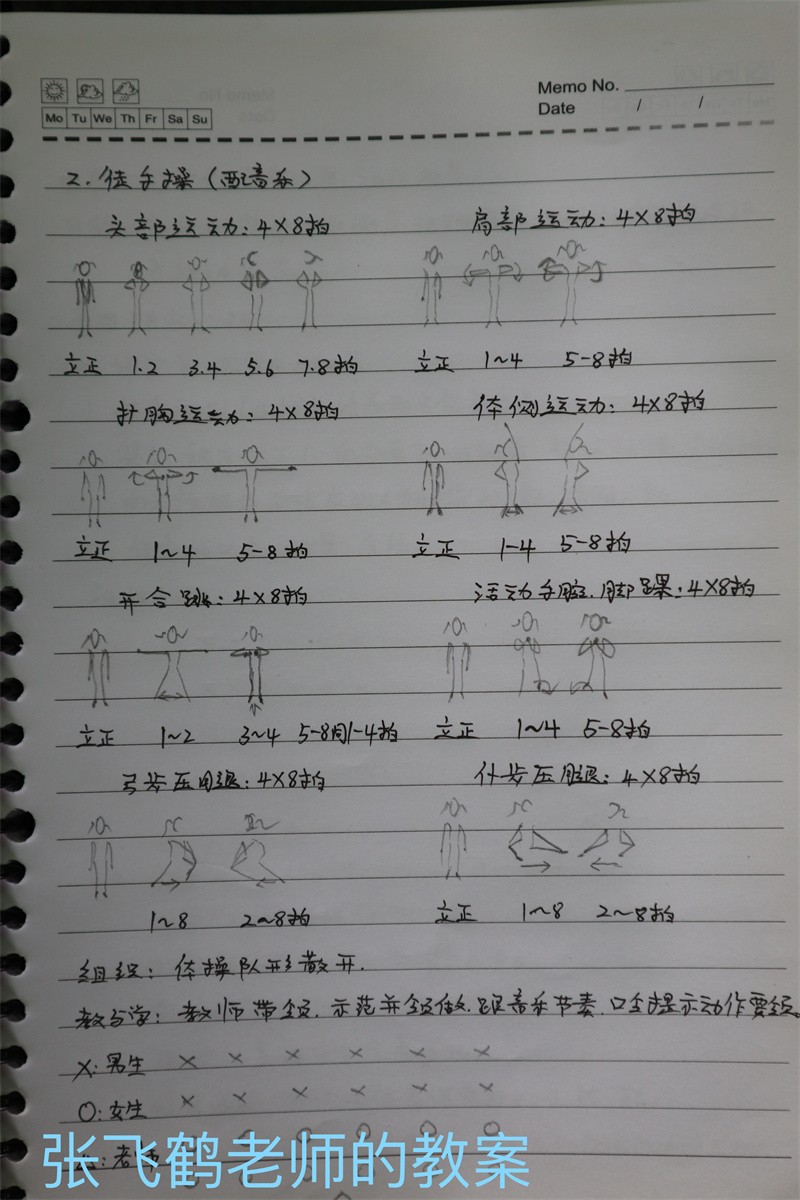 Memo No.
Mo Tu We Th Fr Sa Su
Date / /
2. 徒手操(配音乐)
头部运动: 4×8拍 肩部运动: 4×8拍
立正 1.2 3.4 5.6 7.8拍 立正 1~4 5-8拍
扩胸运动: 4×8拍 体侧运动: 4×8拍
立正 1~4 5-8拍 立正 1-4 5-8拍
开合跳: 4×8拍 活动手腕.脚踝: 4×8拍
立正 1~2 3~4 5-8同1-4拍 立正 1~4 5-8拍
弓步压腿: 4×8拍 仆步压腿: 4×8拍
1~8 2~8拍 立正 1~8 2~8拍
组织: 体操队形散开.
教与学: 教师带领.示范并领做.跟音乐节奏.口令提示动作要领。
X: 男生 × × × × × ×
O: 女生 × × × × × ×
:老师
张飞鹤老师的教案